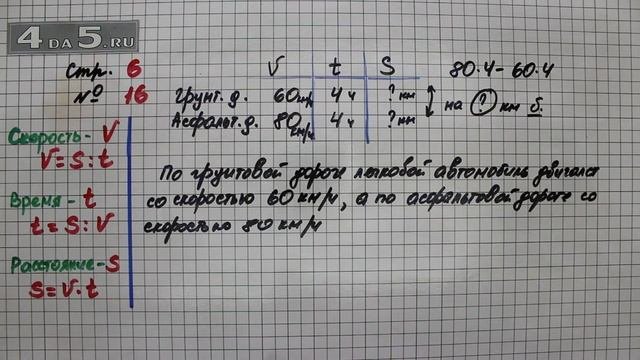 4DA5.RU
Стр. 6
№ 16
V t S
Грунт. д. 60 км/ч 4 ч ? км
Асфальт. д. 80 км/ч 4 ч ? км
на ? км б.
80·4-60·4
Скорость - V
V = S : t
Время - t
t = S : V
Расстояние - S
S = V · t
По грунтовой дороге легковой автомобиль двигался
со скоростью 60 км/ч, а по асфальтовой дороге со
скоростью 80 км/ч